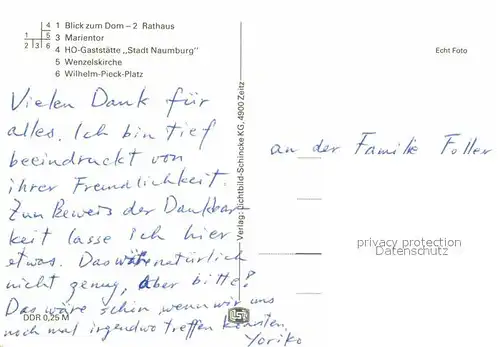 1 Blick zum Dom – 2 Rathaus
3 Marientor
4 HO-Gaststätte „Stadt Naumburg"
5 Wenzelskirche
6 Wilhelm-Pieck-Platz
4
1 5
2 3 6
Echt Foto
Vielen Dank für
alles. Ich bin tief
beeindruckt von
ihrer Freundlichkeit.
Zum Beweis der Dankbar-
keit lasse ich hier
etwas. Das wäre natürlich
nicht genug, Aber bitte!
Das wäre schön, wenn wir uns
noch mal irgendwo treffen könnten.
Yoriko
DDR 0,25 M
Verlag: Lichtbild-Schincke KG, 4900 Zeitz
an der Familie Foller
privacy protection
Datenschutz